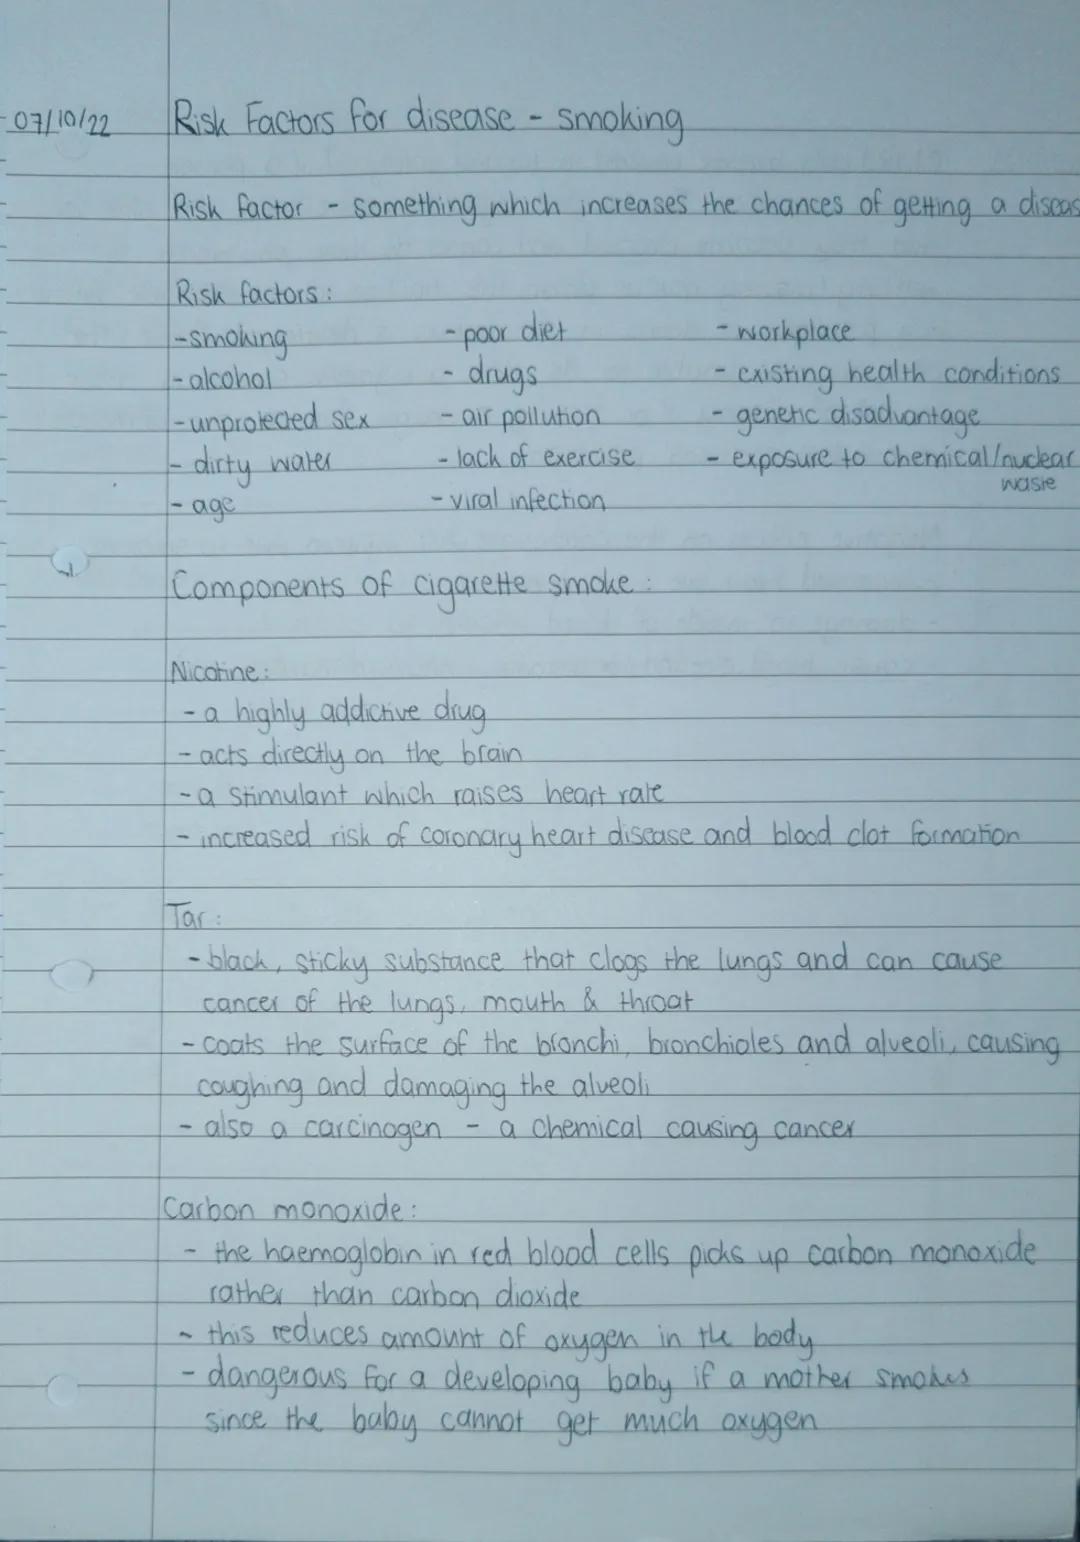 07/10/22 Risk Factors for disease - smoking
Risk factor - something which increases the chances of getting a diseas
Risk factors:
-smoking - poor diet - workplace
- alcohol - drugs - existing health conditions
- unprotected sex - air pollution - genetic disadvantage
- dirty water - lack of exercise - exposure to chemical/nuclear
waste
- age - viral infection
Components of cigarette smoke:
Nicotine:
- a highly addictive drug
- acts directly on the brain
- a stimulant which raises heart rate
- increased risk of coronary heart disease and blood clot formation
Tar:
- black, sticky substance that clogs the lungs and can cause
cancer of the lungs, mouth & throat
- coats the surface of the bronchi, bronchioles and alveoli, causing
coughing and damaging the alveoli
- also a carcinogen - a chemical causing cancer
Carbon monoxide:
- the haemoglobin in red blood cells picks up carbon monoxide
rather than carbon dioxide
- this reduces amount of oxygen in the body
- dangerous for a developing baby if a mother smokes
since the baby cannot get much oxygen